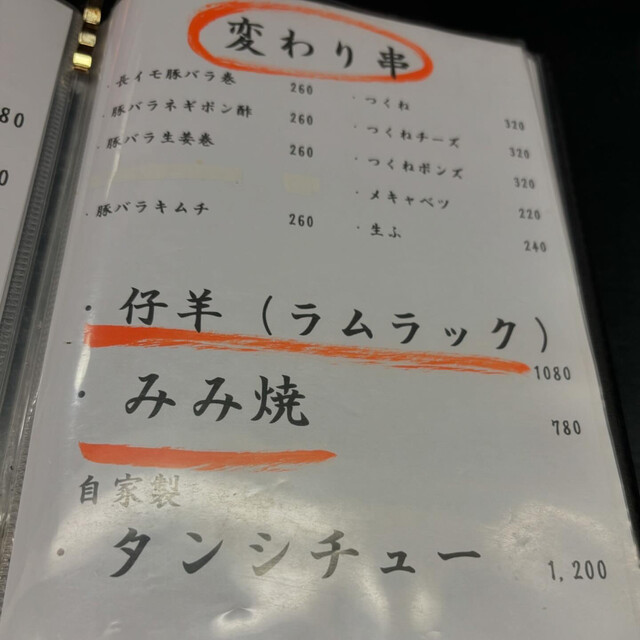 変わり串
・長イモ豚バラ巻 260
・豚バラネギポン酢 260
・豚バラ生姜巻 260
・豚バラキムチ 260
・つくね 320
・つくねチーズ 320
・つくねポンズ 320
・メキャベツ 220
・生ふ 240
・仔羊(ラムラック) 1080
・みみ焼 780
自家製
・タンシチュー 1,200
80
0